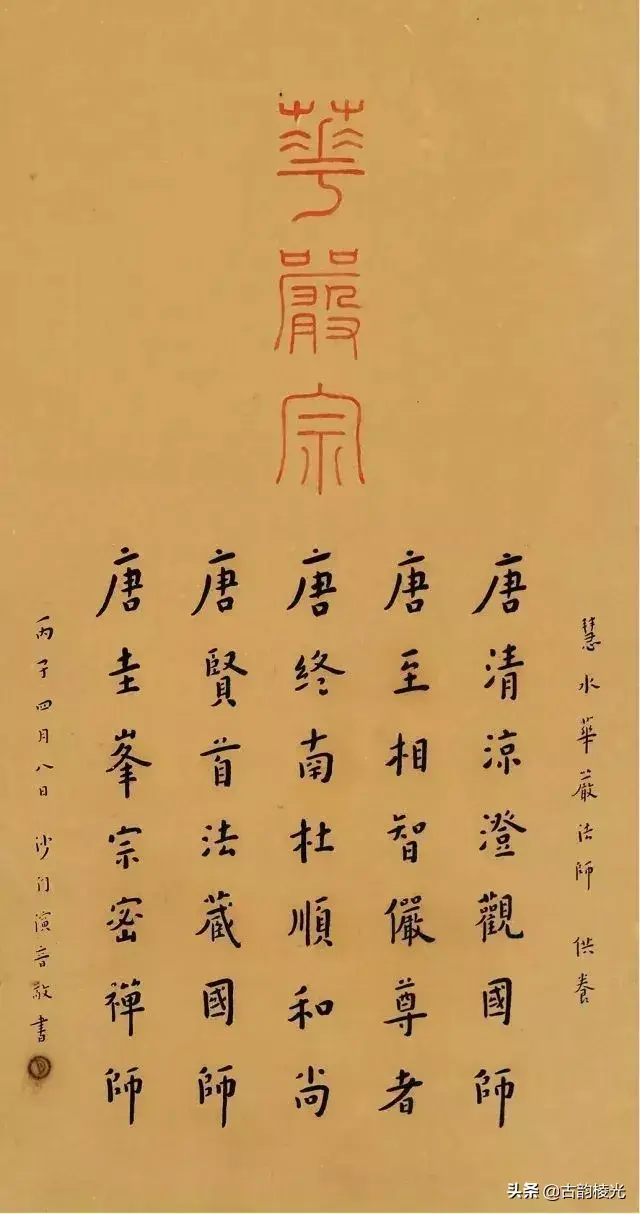 華嚴宗
慧水華嚴法師 供養
唐清涼澄觀國師
唐至相智儼尊者
唐終南杜順和尚
唐賢首法藏國師
唐圭峯宗密禪師
丙子四月八日 沙門演音敬書
头条 @古韵棱光